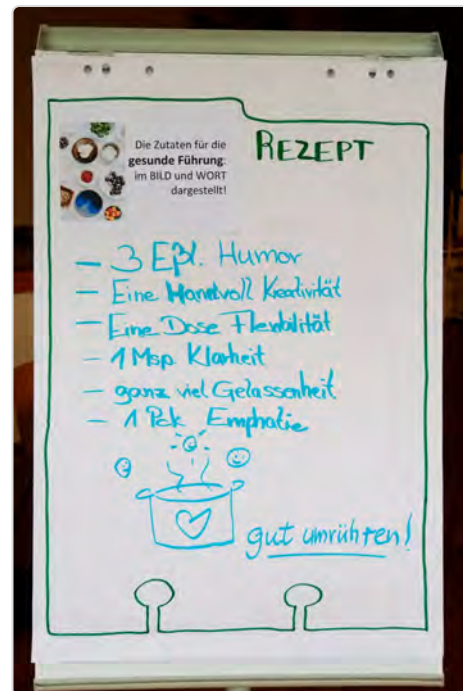 Die Zutaten für die
gesunde Führung:
im BILD und WORT
dargestellt!
REZEPT
- 3 Eßl. Humor
- Eine Handvoll Kreativität
- Eine Dose Flexibilität
- 1 Msp. Klarheit
- ganz viel Gelassenheit
- 1 Pck Emphatie
gut umrühren!